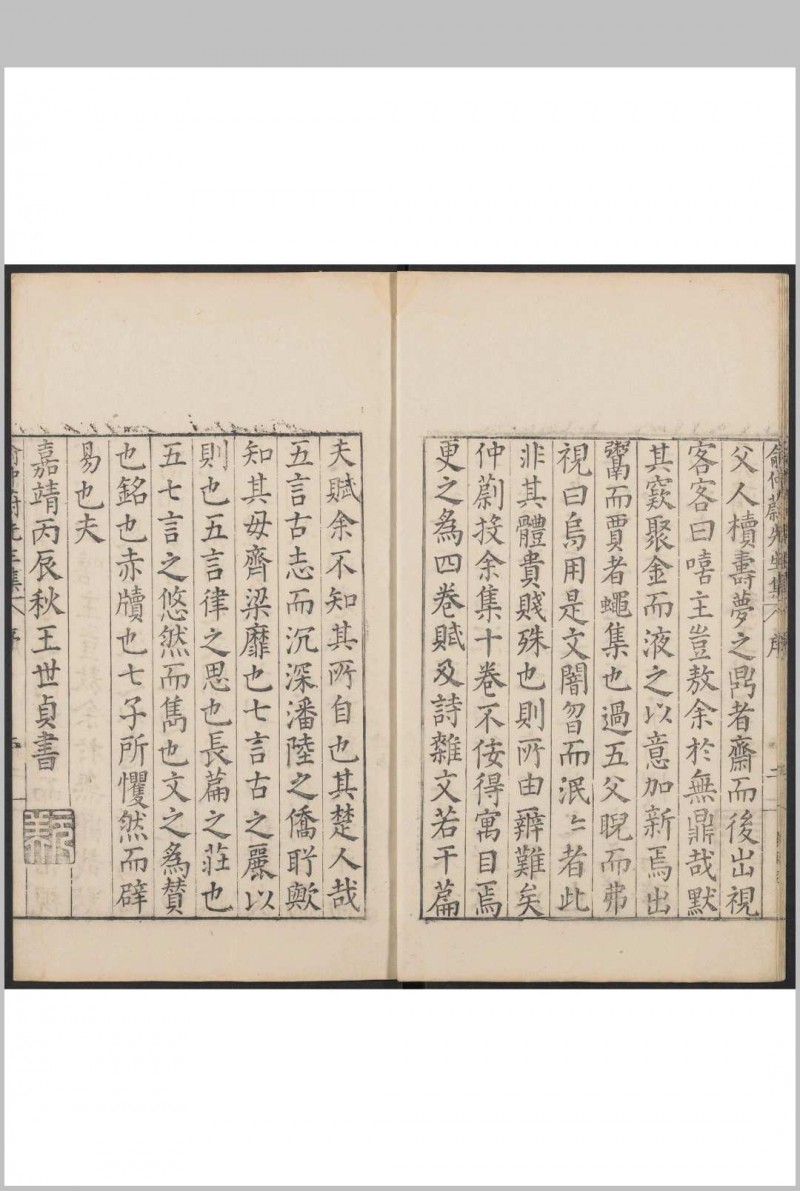 俞仲蔚先生集 序 二
父人櫝壽夢之鼎者齋而後出視
客客曰嘻主豈敖余於無鼎哉默
其窾聚金而液之以意加新焉出
鬻而賈者蠅集也過五父睨而弗
視曰烏用是文闇曶而泯〻者此
非其體貴賤殊也則所由辧難矣
仲蔚投余集十卷不佞得寓目焉
更之為四卷賦及詩雜文若干篇
夫賦余不知其所自也其楚人哉
五言古志而沉深潘陸之僑盱歟
知其毋齊梁靡也七言古之麗以
則也五言律之思也長篇之莊也
五七言之悠然而雋也文之為贊
也銘也赤牘也七子所懼然而辟
易也夫
嘉靖丙辰秋王世貞書